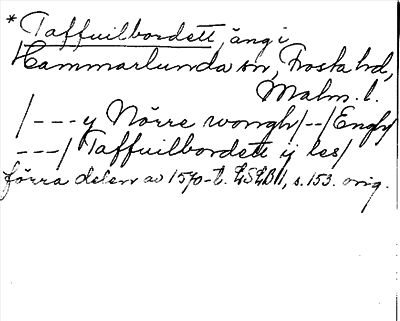 * Taffvilbordett, äng i
Hammarlunda sn, Frosta hd,
Malm. l.
/ --- y Nörre wongh/--/Engh/
---/ Taffuilbordett ij les/
förra delen av 1570-t. LSLB II, s. 153. orig.